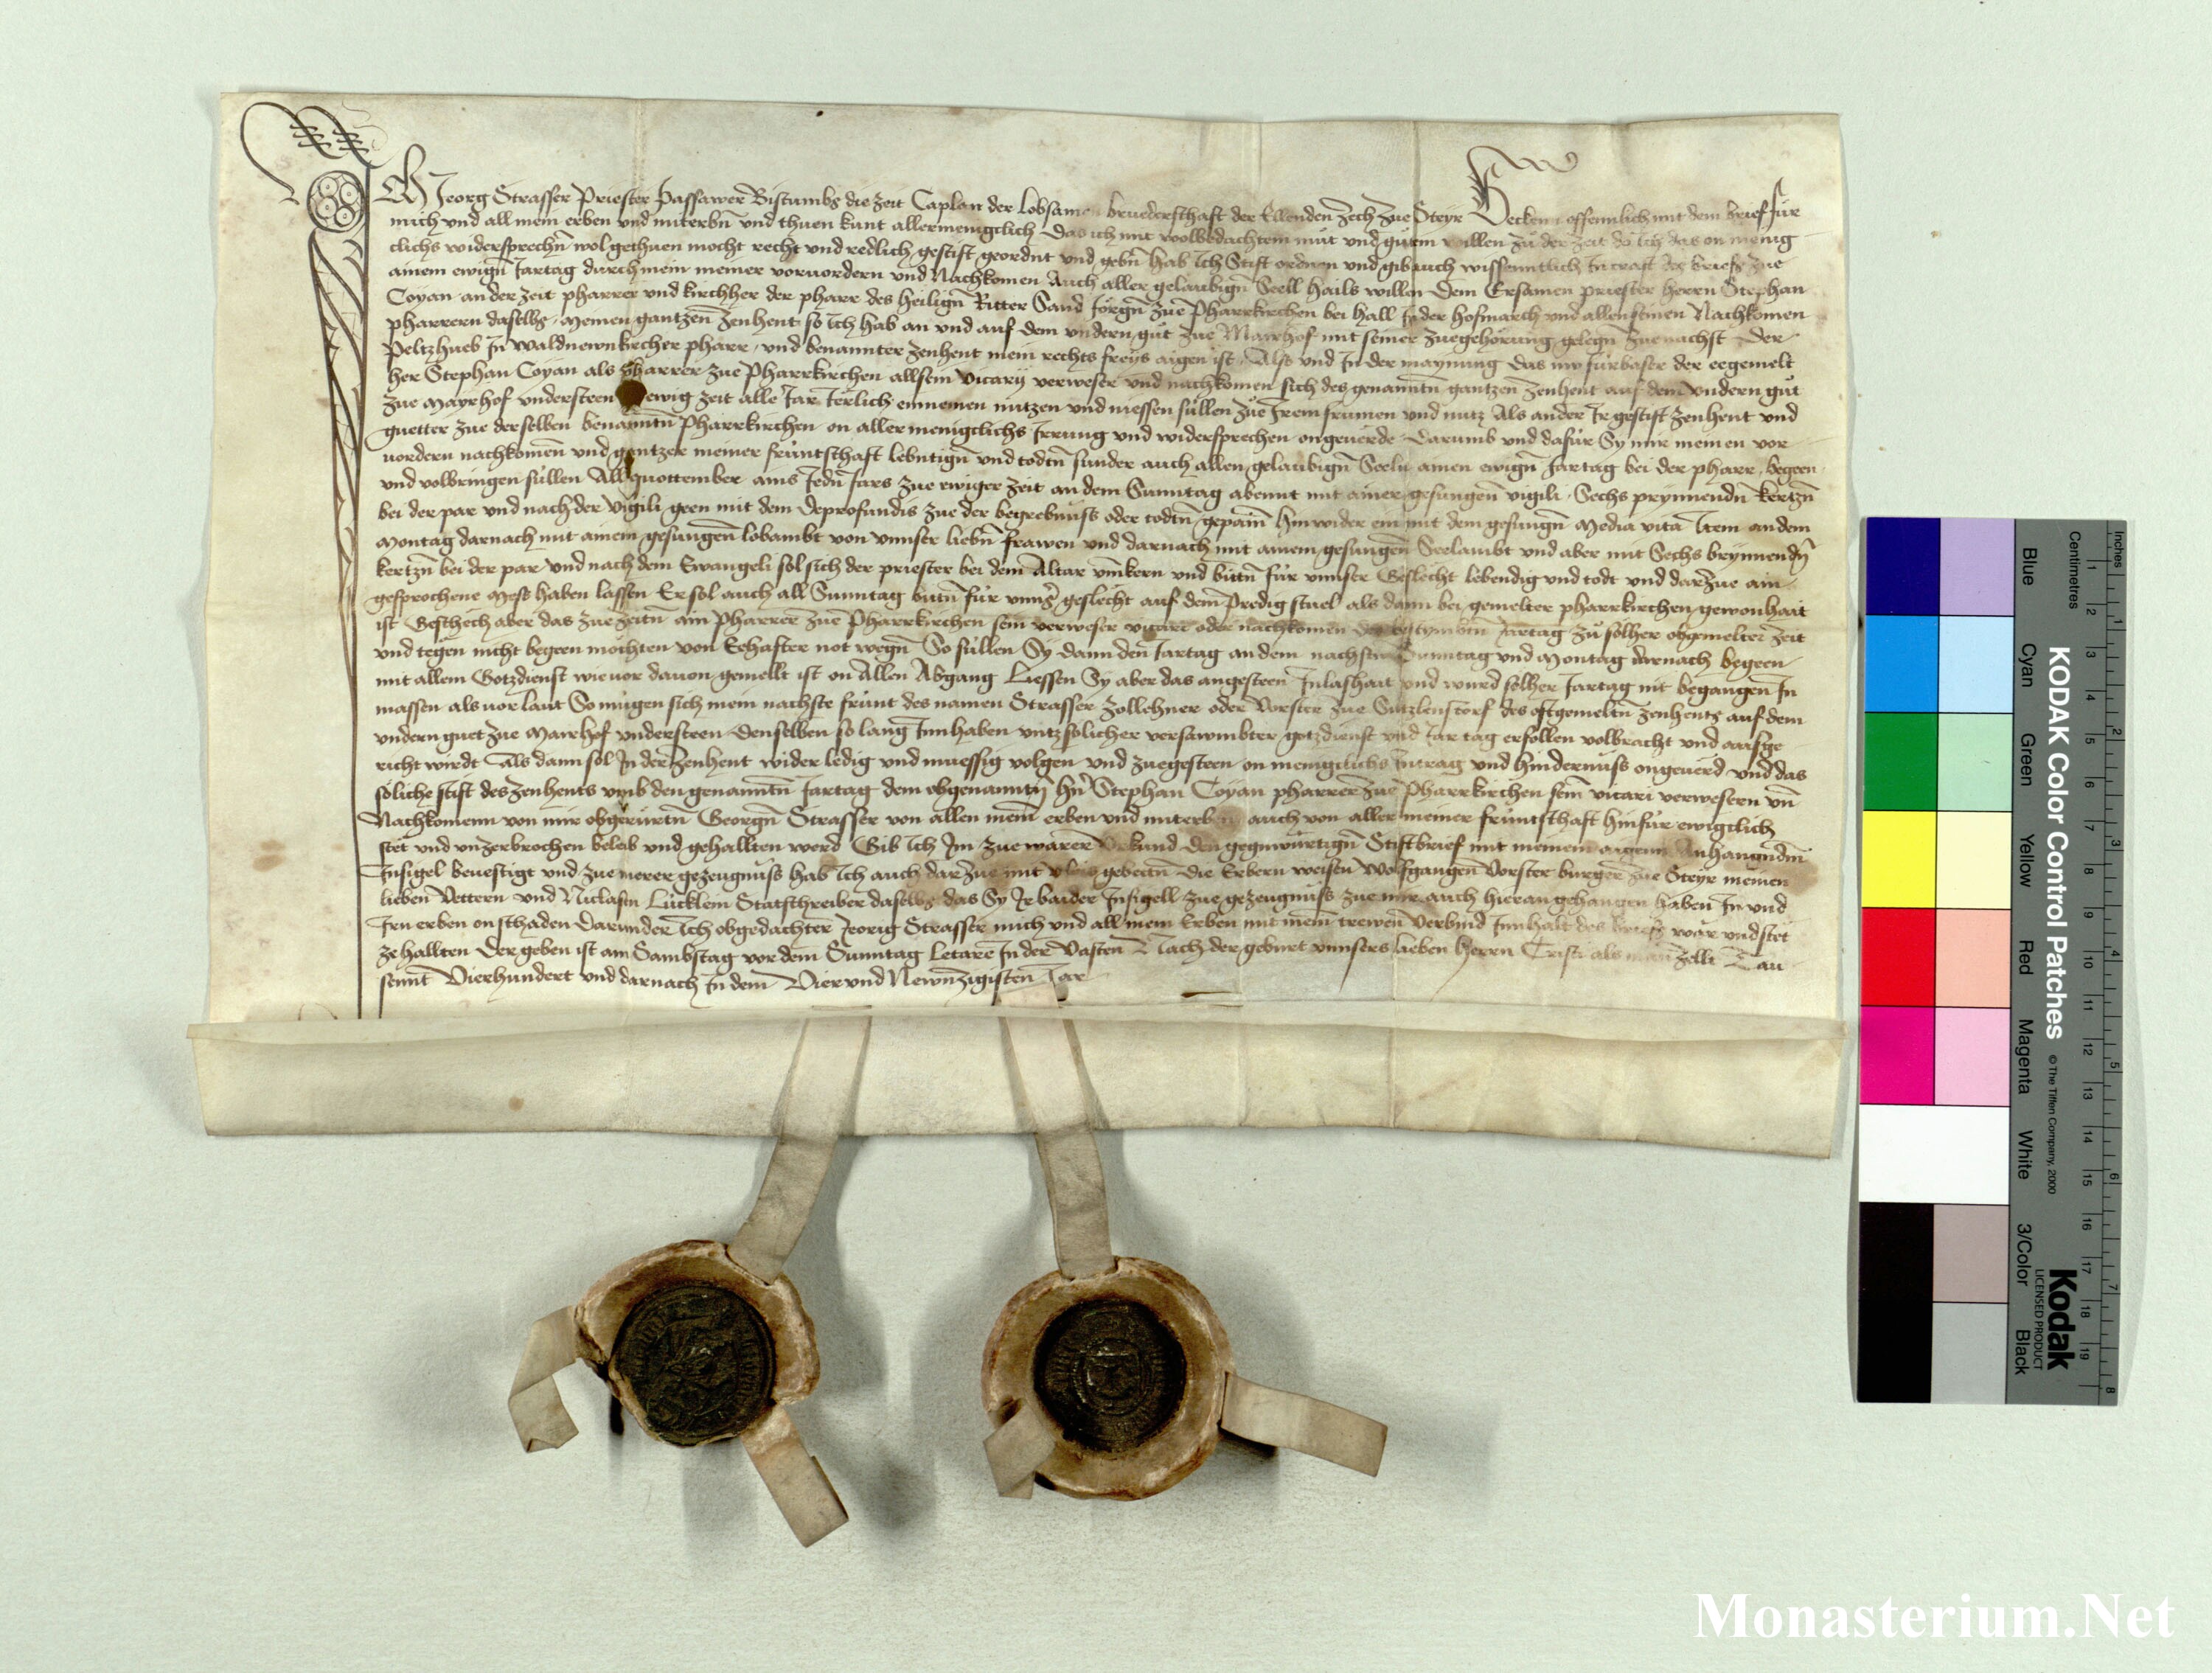 Ich Jeorg Strasser Priester Passawer Bistumbs die zeit Caplan der Lobsamen bruederschaft der Ellenden zech zue Steyr Becken offennlich mit dem brief für
mich und all mein erben und miterbn̄ und thuen kunt allermenigclich Das ich mit wolbedachtem müt und gütem willen zü der zeit do ich das on menig
clichs widersprechn̄ wol gethuen mocht recht und redlich gestift geordnt und gebn̄ hab Ich Stift ordnen und gib auch wissenntlich In craft des briefs zue
ainem ewign̄ Jartag durch mein meiner voruordern und Nachkomen Auch aller gelaubign̄ Seell hails willen Dem Ersamen priester herrn Stephan
Coyan an der zeit pharrer und kirchher der pharr des heilign̄ Ritter Sand Jörgn̄ zue Pharrkirchen bei Hall In der hofmarch und allen seinen Nachkomen
pharrern daselbs meinen gantzen̄ zenhent so Ich hab an und auf dem undern güt zue Mairhof mit seiner zuegehörung gelegn̄ zue nachst Der
Peltzhueb In waldnewnkircher pharr und benannter zenhent mein rechts freys aigen ist Also und In der maynung das nw fürbaser der eegemelt
her Stephan Coyan als pharrer zue Pharrkirchen all sein vicarij verweser und nachkomen sich des genanntn̄ gantzen zenhent auf dem undern güt
zue Mayrhof understeen ewig zeit alle Jar Jerlich einnemen nutzen und niessen süllen zue Irem frumen und nutz Als ander Ir gestift zenhent und
guetter zue derselben benanntn̄ Pharrkirchen on allermenigclichs Irrung und widersprechen ongeuerde Darumb und dafür Sy mir meinen vor
uordern nachkomen̄ und gantzer meiner früntschaft lebntign̄ und todtn̄ sunder auch allen gelaubign̄ Seeln ainen ewign̄ Jartag bei der pharr begeen
und volbringen süllen All quottember ains Jedn̄ Jars zue ewiger zeit an dem Sunntag abennt mit ainer gesungen̄ vigili Sechs prynnendn̄ kertzn̄
bei der par und nach der vigili geen mit dem Deprofundis zue der begrebnüss oder todtn̄ gepain̄ hin wider ein mit dem gesungn̄ Media vita Item an dem
Montag darnach mit ainem gesungen̄ lobambt von unnser liebn̄ frawen und darnach mit ainem gesungen̄ Seelambt und aber mit Sechs brynnendn̄
kertzn̄ bei der par und nach dem Ewangeli sol sich der priester bei dem Altar umkern und bittn̄ für unnser Geslecht lebendig und todt und darzue ain
gesprochene Mess haben lassen Er sol auch all Sunntag bittn̄ für unns̄ geslecht auf dem Predig stuel als dann bei gemelter pharrkirchen gewonhait
ist Geschech aber das zue zeitn̄ ain Pharrer zue Pharrkirchen sein verweser vicari oder nachkomen den bestymbtn̄ Jartag zü solher obgemelter zeit
und tegen nicht begeen möchten von Eehafter not wegn̄ So süllen Sy dann den Jartag an dem nachstn̄ Sunntag und Montag darnach begeen
mit allem Gotzdienst wie vor dauon gemellt ist on Allen Abgang Liessen Sy aber das angesteen Inlashait und wurd solher Jartag nit begangen In
massen als vor laut So mügen sich mein nachste frünt des namen Strasser Zollehner oder Vorster zue Sinzlenstorf des oftgemeltn̄ zenhents auf dem
undern guet zue Mairhof understeen Denselben so lang Innhaben untz solicher versawmbter gotzdienst und Jartag erfollen volbracht und ausge
richt wirdt Als dann sol In der zenhent wider ledig und muessig volgen und zuegesteen on menigclichs Intrag und hindernuss ongeuerd und das
soliche stift des zenhents umb den genanntn̄ Jartag dem obgenanntn̄ hn̄ Stephan Coyan pharrer zue Pharrkirchen sein̄ vicari verwesern un̄
Nachkomenn von mir obgerürtn̄ Georgn̄ Strasser von allen mein̄ erben und miterbn̄ auch von aller meiner früntschaft hinfür ewigclich
stet und unzerbrochen beleib und gehallten werd Gib Ich Im zue warer Urkund den gegnwürtign̄ Stiftbrief mit meinem aigenn Anhangndm̄
Insigel beuestigt und zue merer gezeugnüss hab Ich auch darzue mit vleis gebettn̄ die Erbern weisen Wolfgangen̄ Vorster burger zue Steyr meinen
lieben̄ Vettern und Niclasen Lücklein Statschreiber daselbs das Sy Ir baider Insigell zue gezeugnüss zue mir auch hieran gehangen haben In und
Irn erben on schaden Darunder Ich obgedachter Jeorig Strasser mich und all mein Erben mit mein̄ trewen̄ Verbind Innhalt des briefs war und stet
ze hallten Der geben ist am Sambstag vor dem Sunntag Letare In der Vasten̄ Nach der geburt unnsers lieben herrn Cristi als man zellt Tau
sennt Vierhundert und darnach In dem Vier und Newnzigisten̄ Jar
KODAK Color Control Patches
© The Tiffen Company, 2000
Kodak
LICENSED PRODUCT
Inches
Centimetres
Blue Cyan Green Yellow Red Magenta White 3/Color Black
1 2 3 4 5 6 7 8 9 10 11 12 13 14 15 16 17 18 19
1 2 3 4 5 6 7 8
Monasterium.Net